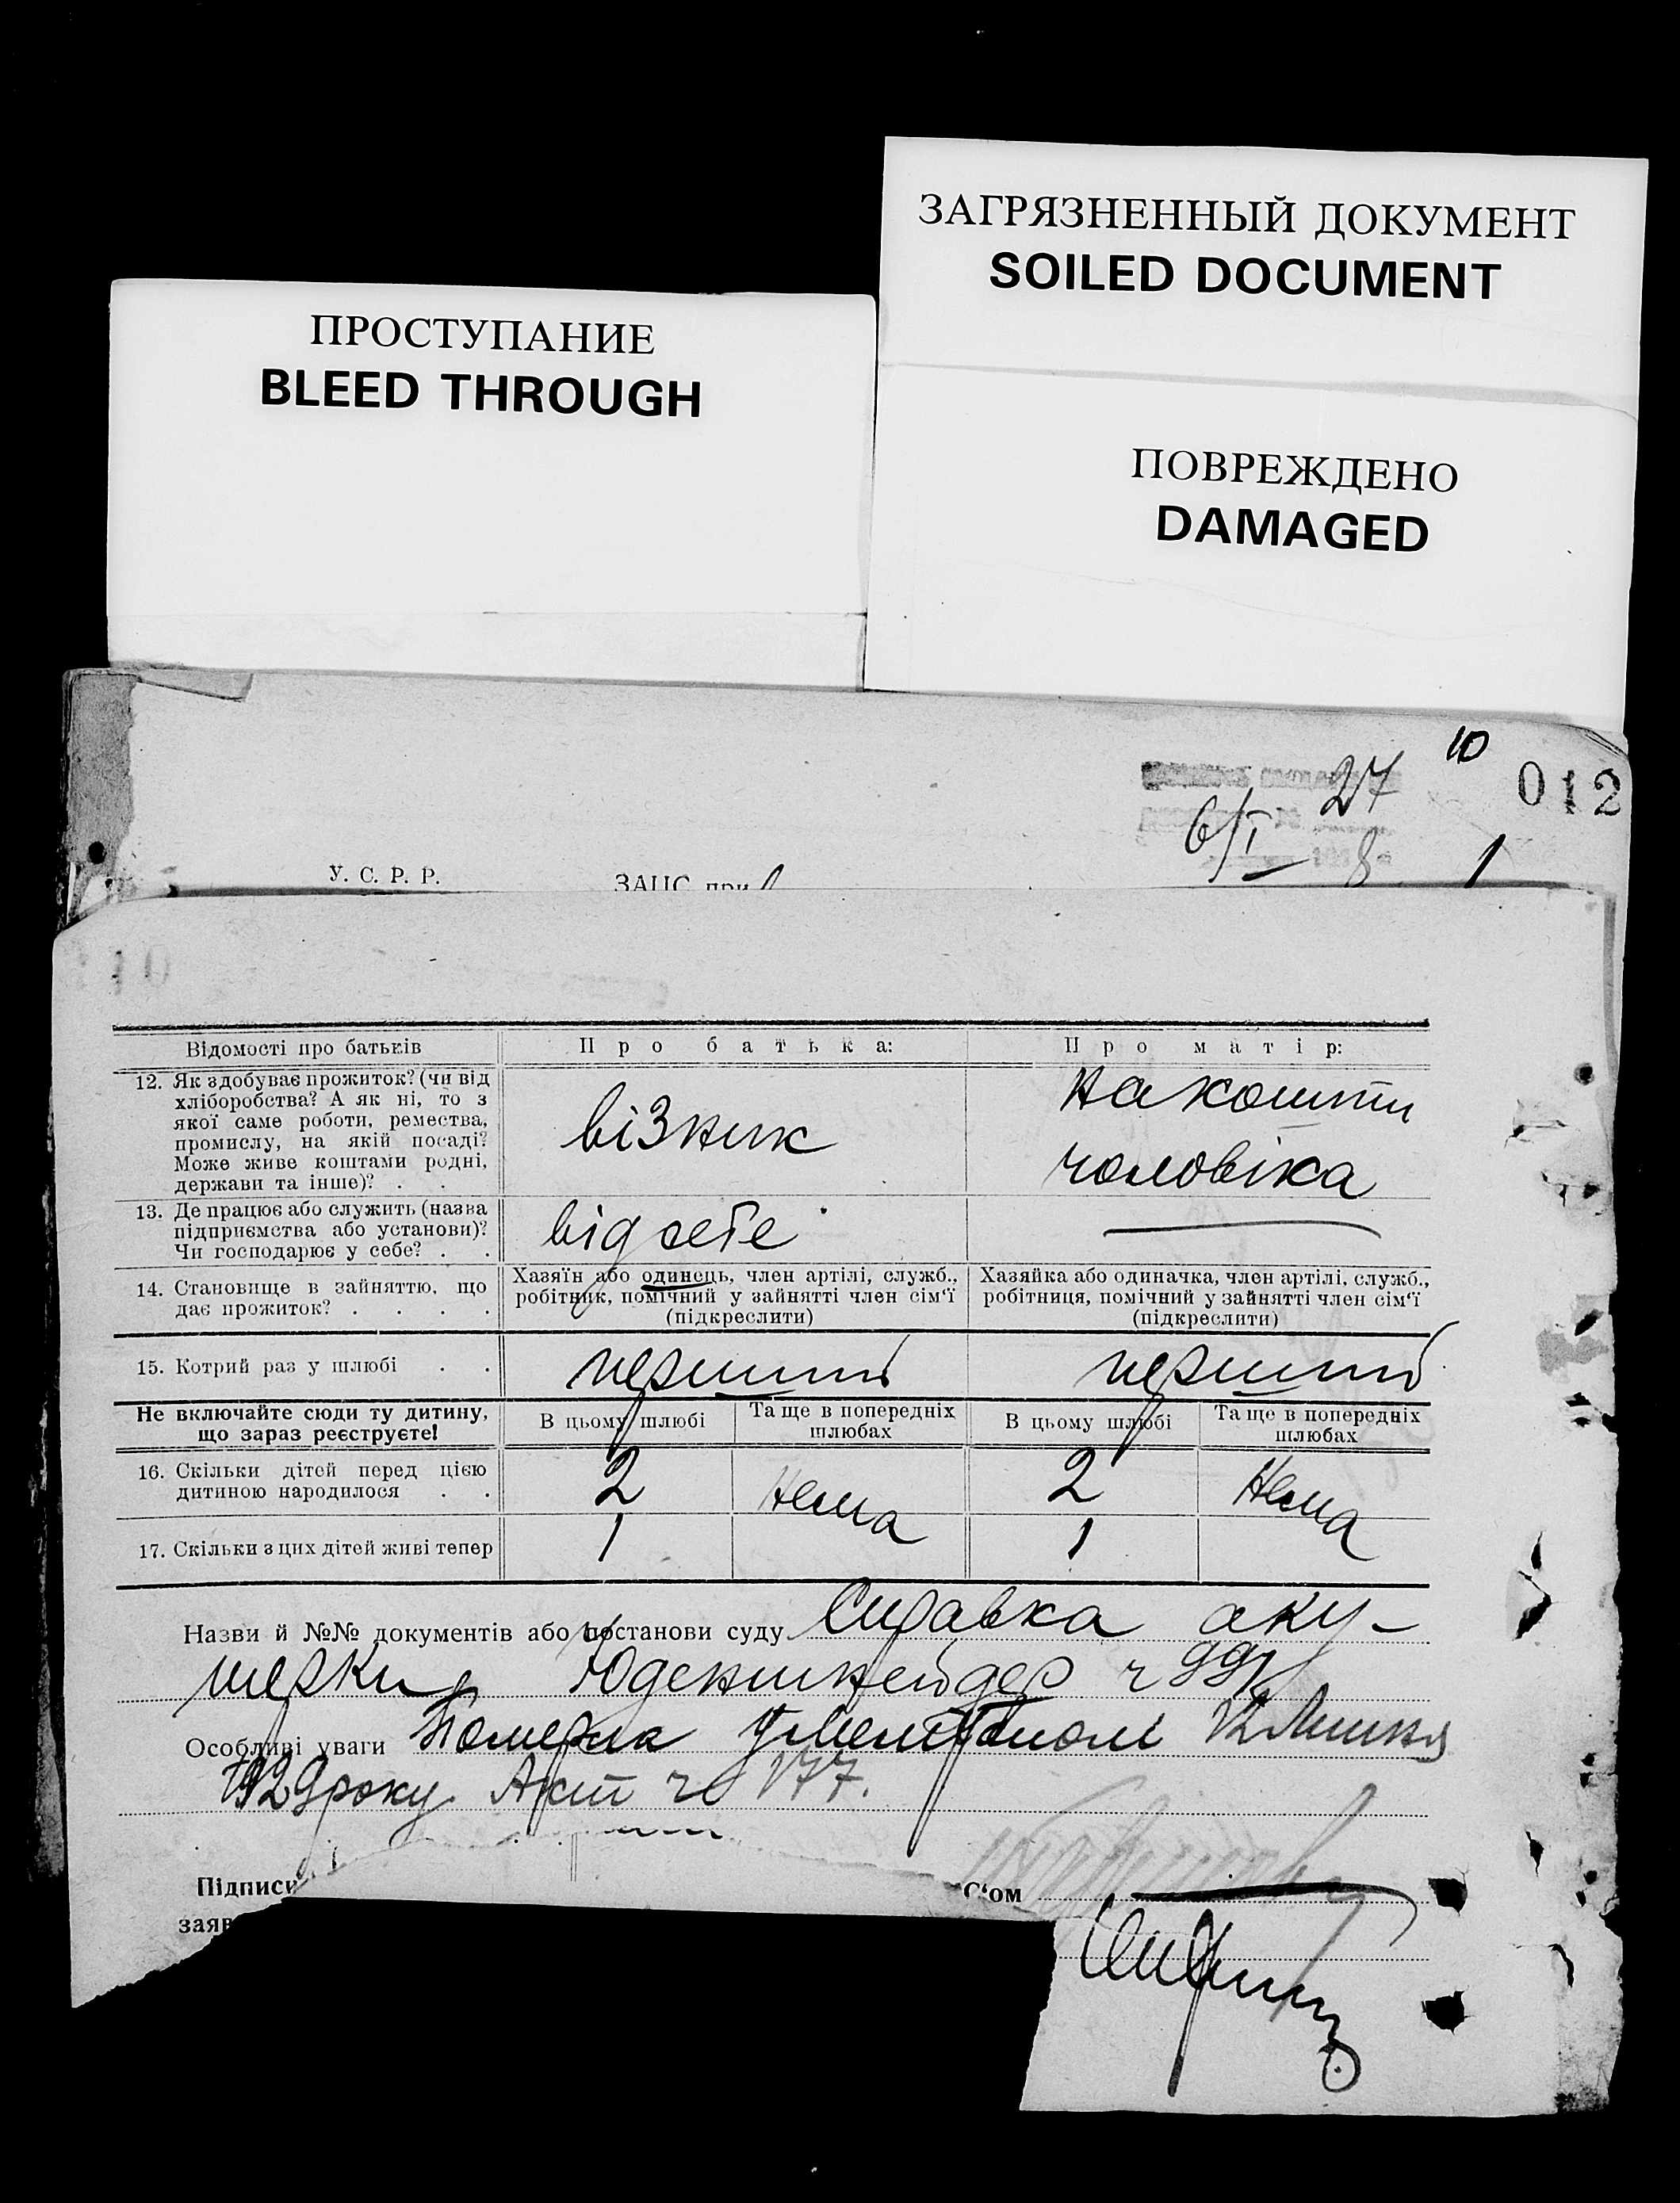 ЗАГРЯЗНЕННЫЙ ДОКУМЕНТ
SOILED DOCUMENT
ПРОСТУПАНИЕ
BLEED THROUGH
ПОВРЕЖДЕНО
DAMAGED
10
27
012
6/I
8
1
У. С. Р. Р.
ЗАЦС при
Відомості про батьків
Про батька:
Про матір:
12. Як здобуває прожиток? (чи від
хліборобства? А як ні, то з
якої саме роботи, ремества,
промислу, на якій посаді?
Може живе коштами родні,
держави та інше)? . .
візник
на кошти
чоловіка
13. Де працює або служить (назва
підприємства або установи)?
Чи господарює у себе? . .
від себе
14. Становище в зайняттю, що
дає прожиток? . . . .
Хазяїн або одинець, член артілі, служб.,
робітник, помічний у зайнятті член сім'ї
(підкреслити)
Хазяйка або одиначка, член артілі, служб.,
робітниця, помічний у зайнятті член сім'ї
(підкреслити)
15. Котрий раз у шлюбі . .
перший
перший
Не включайте сюди ту дитину,
що зараз реєструєте!
В цьому шлюбі
Та ще в попередніх
шлюбах
В цьому шлюбі
Та ще в попередніх
шлюбах
16. Скільки дітей перед цією
дитиною народилося . .
2
Нема
2
Нема
17. Скільки з цих дітей живі тепер
1
1
Назви й №№ документів або постанови суду Справка аку-
шерки ч 99
Особливі уваги Померла
1929 року Акт ч 177.
Підписи
заяв
С'ом